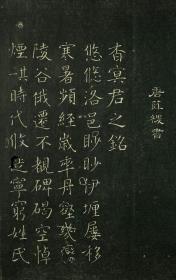 唐薛稷書
杳冥君之銘
悠悠洛邑眇眇伊瀍屢移
寒暑頻經歲年丹壑幾變
陵谷俄遷不覩碑碣空悼
煙時代攸遠寧窮姓氏